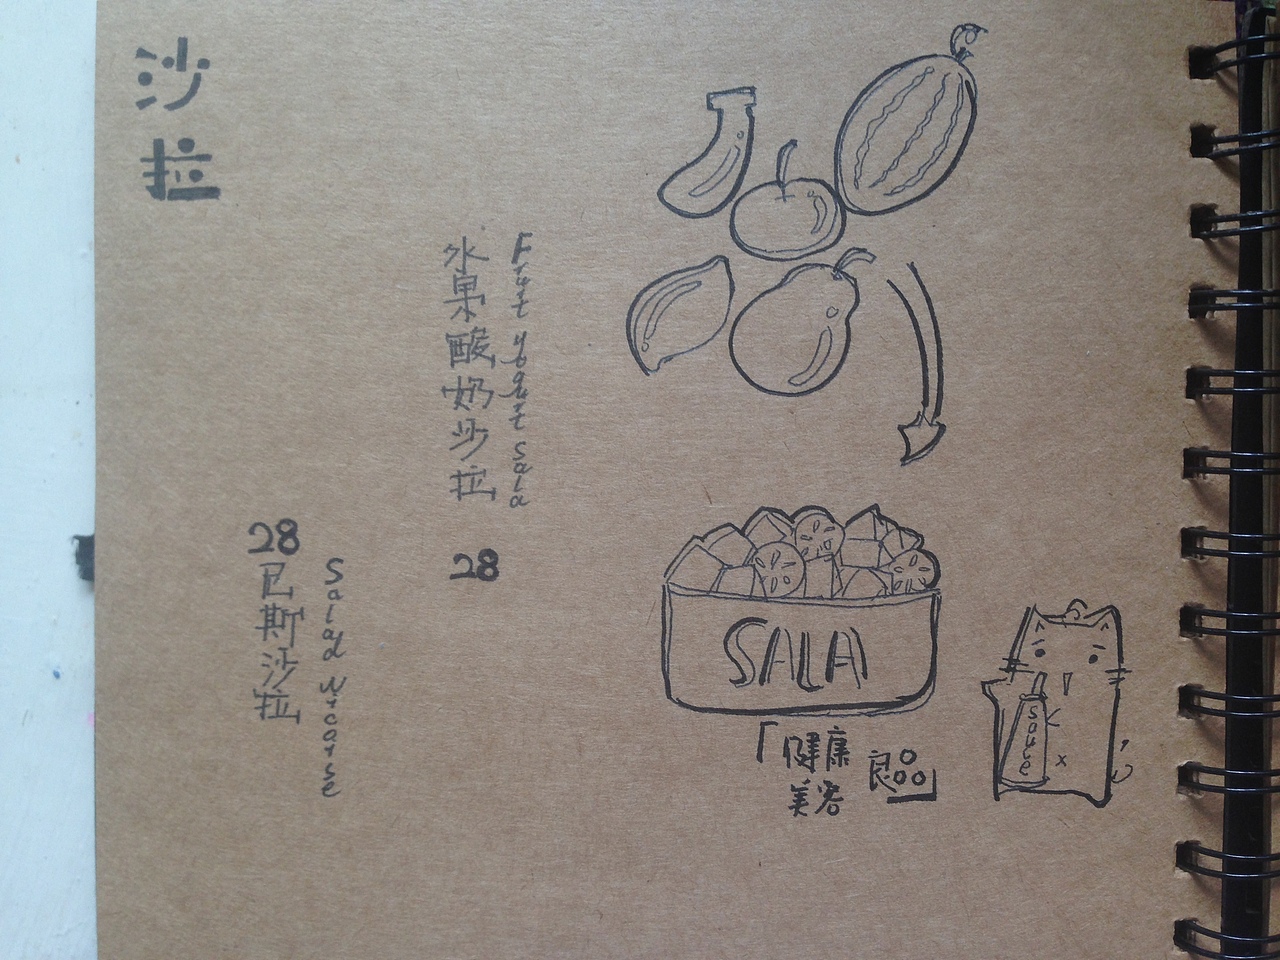 沙拉
水果酸奶沙拉
Fruit yogurt sala
28
28
巴斯沙拉
Salad nicoise
SALA
「健康
美容
良品」
sauce